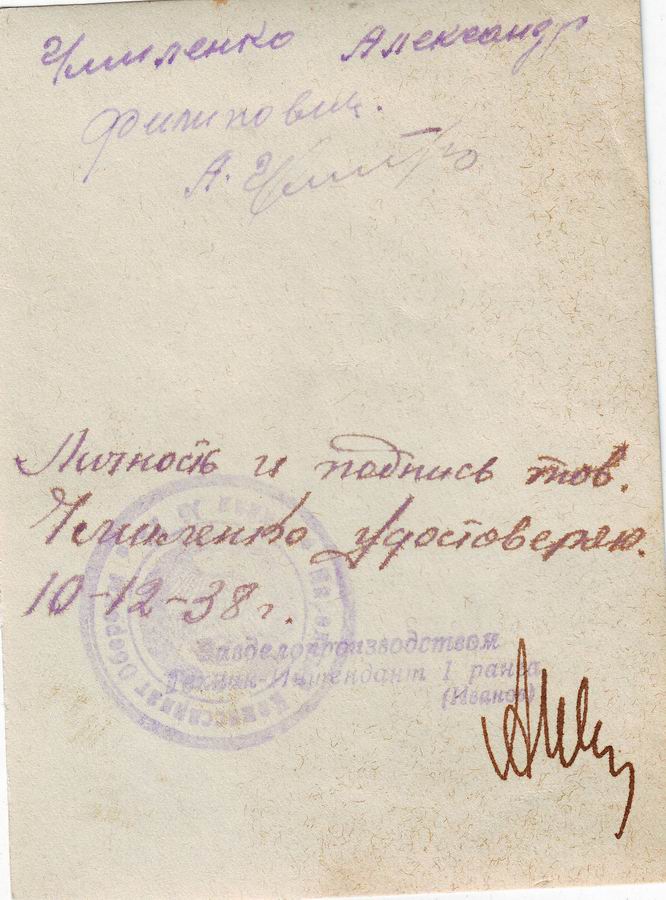 Чмиленко Александр
Филипович.
А. Чмиленко
Личность и подпись тов.
Чмиленко удостоверяю.
10-12-38 г.
Завделопроизводством
Техник-Интендант 1 ранга
(Иванов)